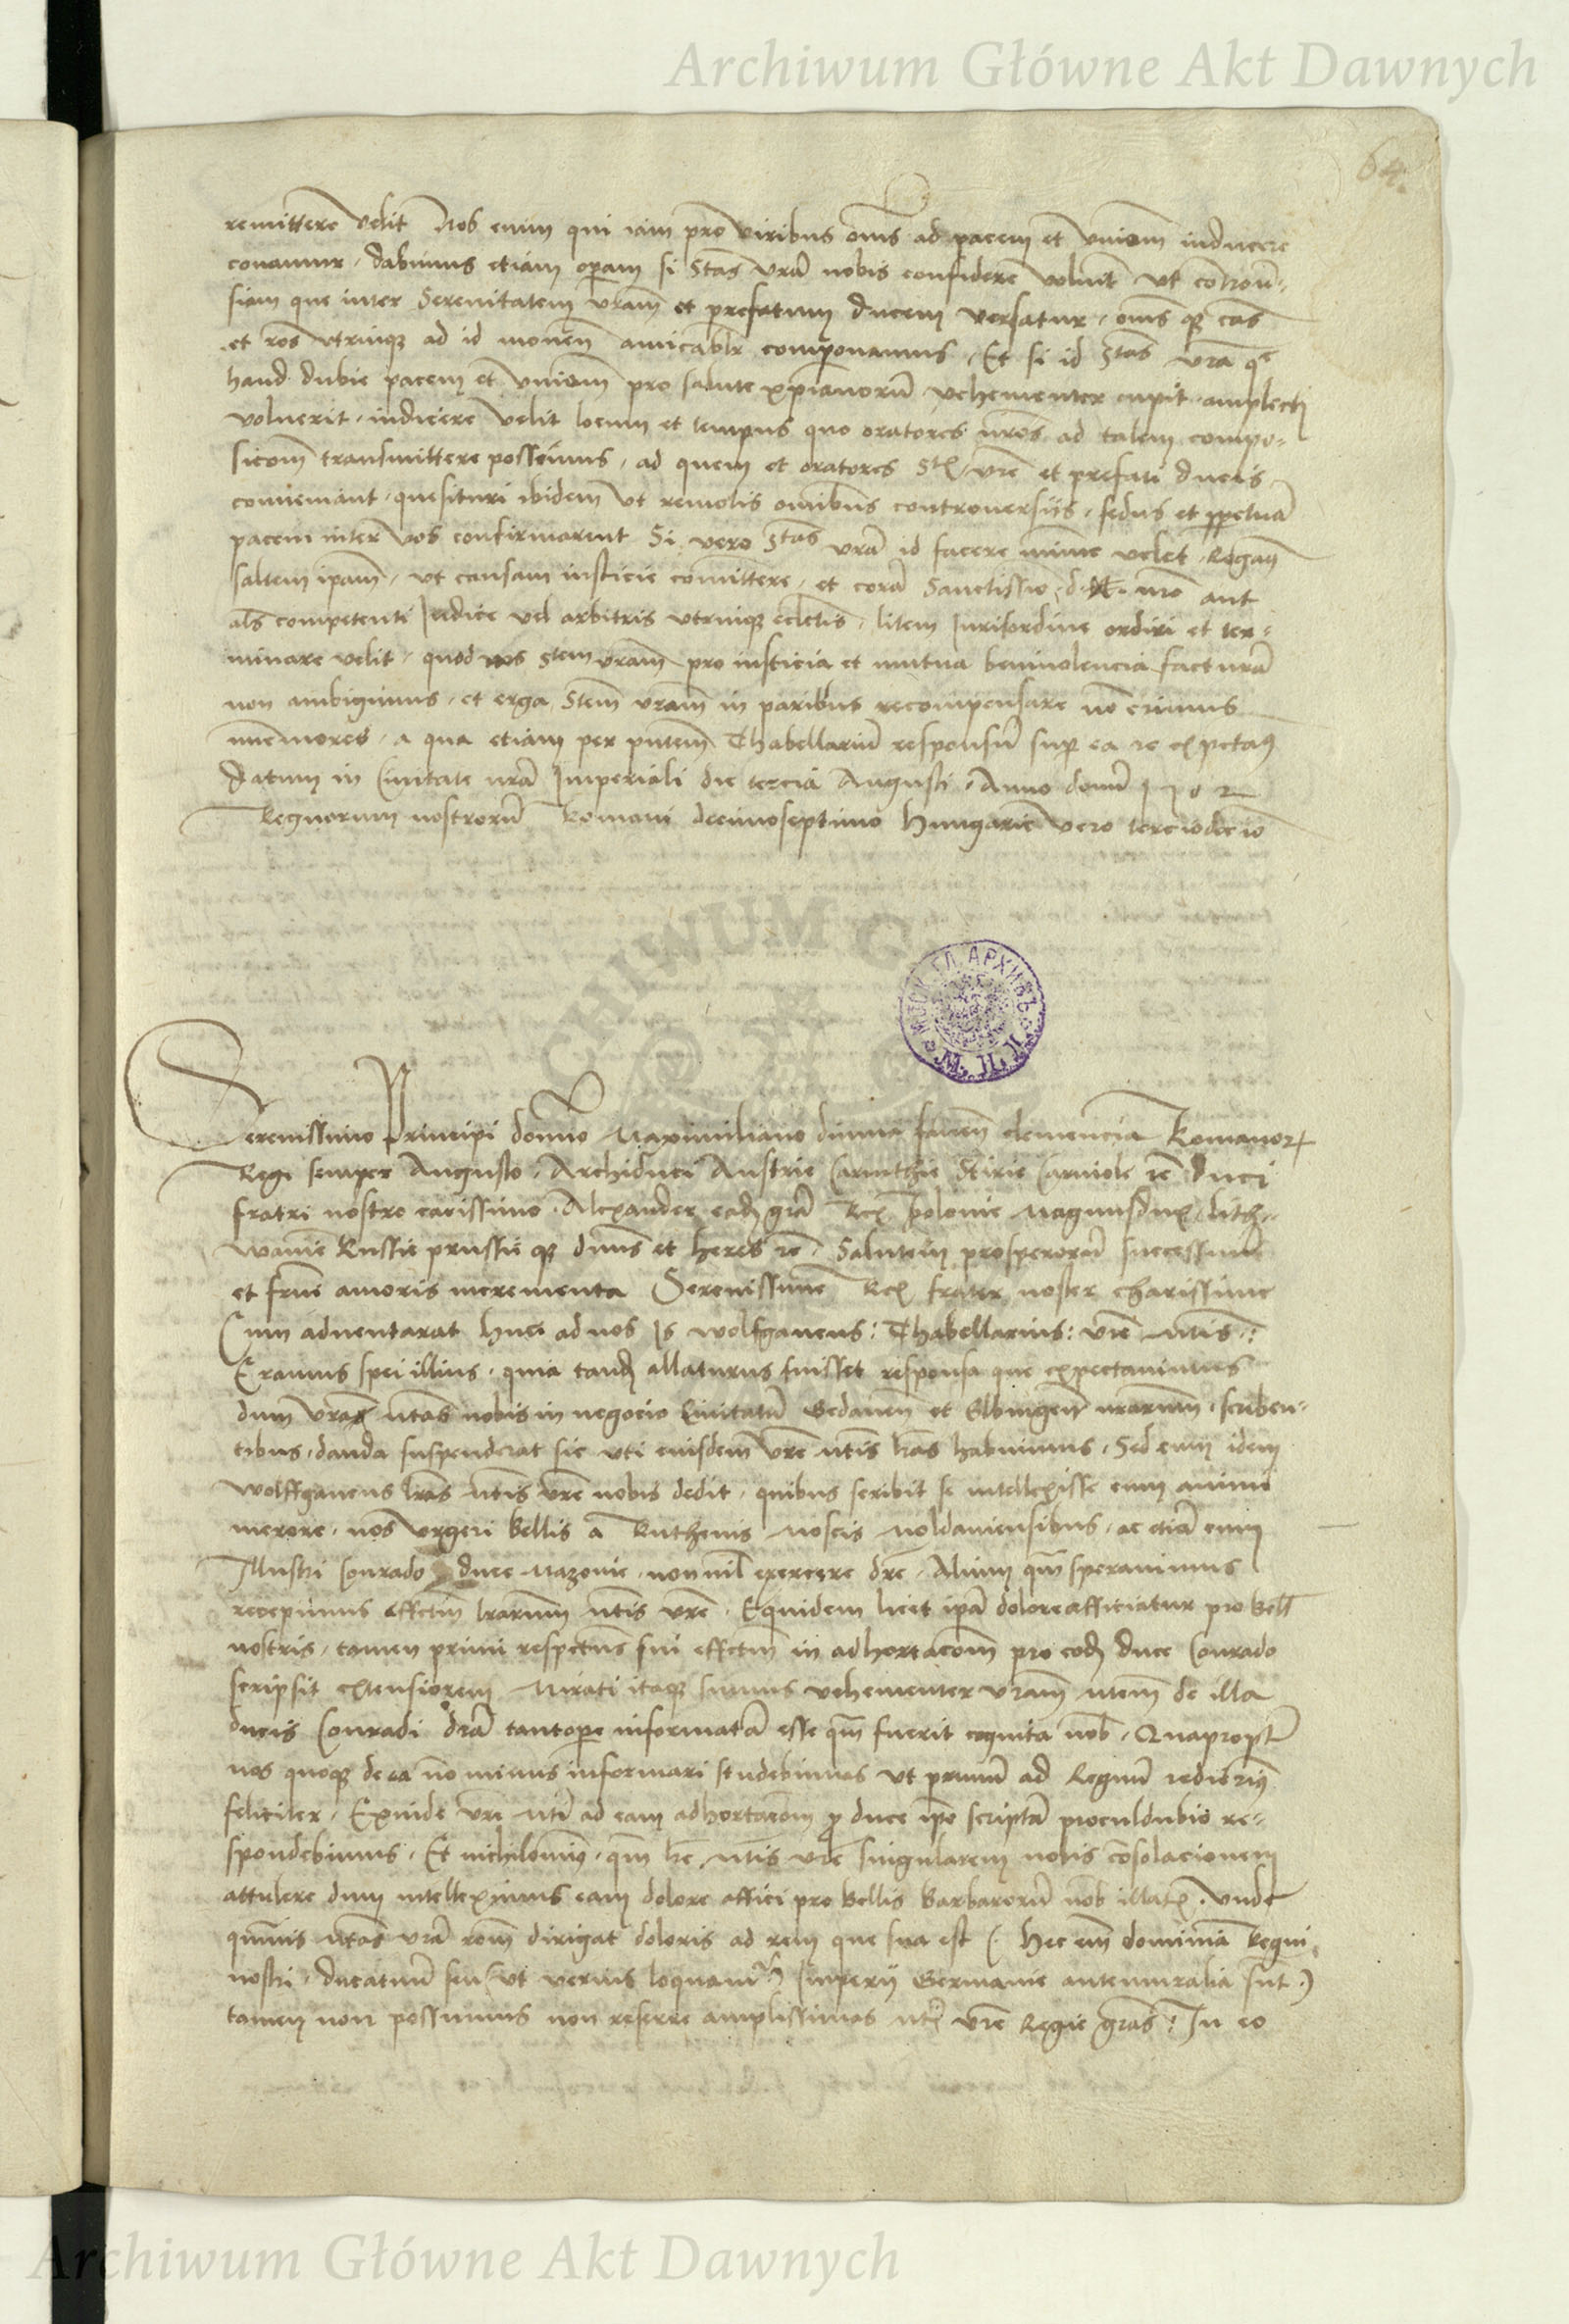 Archiwum Główne Akt Dawnych
64.
remittere velit Nos enim qui iam pro viribus oms ad pacem et vniom inducere
conamur, dabimus etiam operam si Stas vra nobis confidere voluit vt controuer-
siam que inter Serenitatem vram et prefatum Ducem versatur, oms qz cas
et ros vtrinqz ad id monen amicablr componamus, Et si id Stas vra
haud dubie pacem et vniom pro salute xpianoru vehementer cupit amplecti
voluerit, indicere velit locum et tempus quo oratores nros ad talem compo-
sicom transmittere possemus, ad quem et oratores vre et prefati Ducis
conueniant, quesituri ibidem vt remotis omibus controuersiis, fedus et ppetua
pacem inter vos confirmarent Si vero Stas vra id facere minime velet, Rogam9
saltem ipam, vt causam iusticie comittere, et cora Sanctissio d. nro aut
als competenti Iudice vel arbitris vtrinqz electis, litem Iurisordine ordiri et ter-
minare velit, quod nos Stem vram pro iusticia et mutua beniuolencia factura
non ambigimus, et erga Stem vram in paribus recompensare no erimus
immemores, a qua etiam per pntem Thabellariu responsu sup ea re expectam9
Datum in Ciuitate nra Imperiali die tercia Augusti, Anno domi 1502
Regnorum nostroru Romani decimoseptimo Hungarie vero terciodecio
Serenissimo Principi domno Maximiliano diuina fauen clemencia Romanor
Regi semper Augusto, Archiduci Austrie Carinthie Stirie Carniole rc Duci
fratri nostro carissimo Alexander eadz gra Rex Polonie Magnusdux Lith-
wanie Russie prussie qz dnus et heres rc, Salutem prosperoru successuum
et frni amoris incrementa Serenissime Rex frater noster charissime
Cum aduentarat huc ad nos is wolfgancus: Thabellarius: vre Mtis:
Eramus spei illius, quia tandz allaturus fuisset responsa que expectauimus
dum vra Mtas nobis in negocio Ciuitatu Gedanen et Elbingen nrarum, scriben-
tibus, danda suspenderat sic vti eiusdem vre Mtis lras habuimus, Sed cum idem
wolffgancus lras Mtis vre nobis dedit, quibus scribit se intellexisse cum animi
merore, nos vrgeri bellis a Ruthenis Moscis Moldauiensibus, ac etia cum
Illustri Conrado duce Mazouie, nonnil exercere dre, Alium qm sperauimus
recepimus effctm lrarum Mtis vre, Equidem licet ipa dolore afficiatur pro bell
nostris, tamen primi respectus sui effctm in adhortacom pro eodz duce Conrado
scripsit extensiorem Mirati itaqz sumus vehementer vram Mtem de illa
ducis Conradi dra tantope informata esse qm fuerit cognita nob, Quaproptr
nos quoqz de ea no minus informari studebimus vt primu ad Regnu redierim9
feliciter, Exinde vre Mti ad eam adhortacom p duce ipo scripta proculdubio re-
spondebimus, Et nichilomi9, qm he Mtis vre singularem nobis consolacionem
attulere dum intelleximus eam dolore affici pro bellis barbaroru nob illatis, vnde
quamuis Mtas vra rom dirigat doloris ad rem que sua est (Hec em dominia Regni
nostri, Ducatuu seu vt verius loquamur Imperij Germanie antemuralia sut)
tamen non possumus non referre amplissimas Mti vre Regie gras: In eo
Archiwum Główne Akt Dawnych